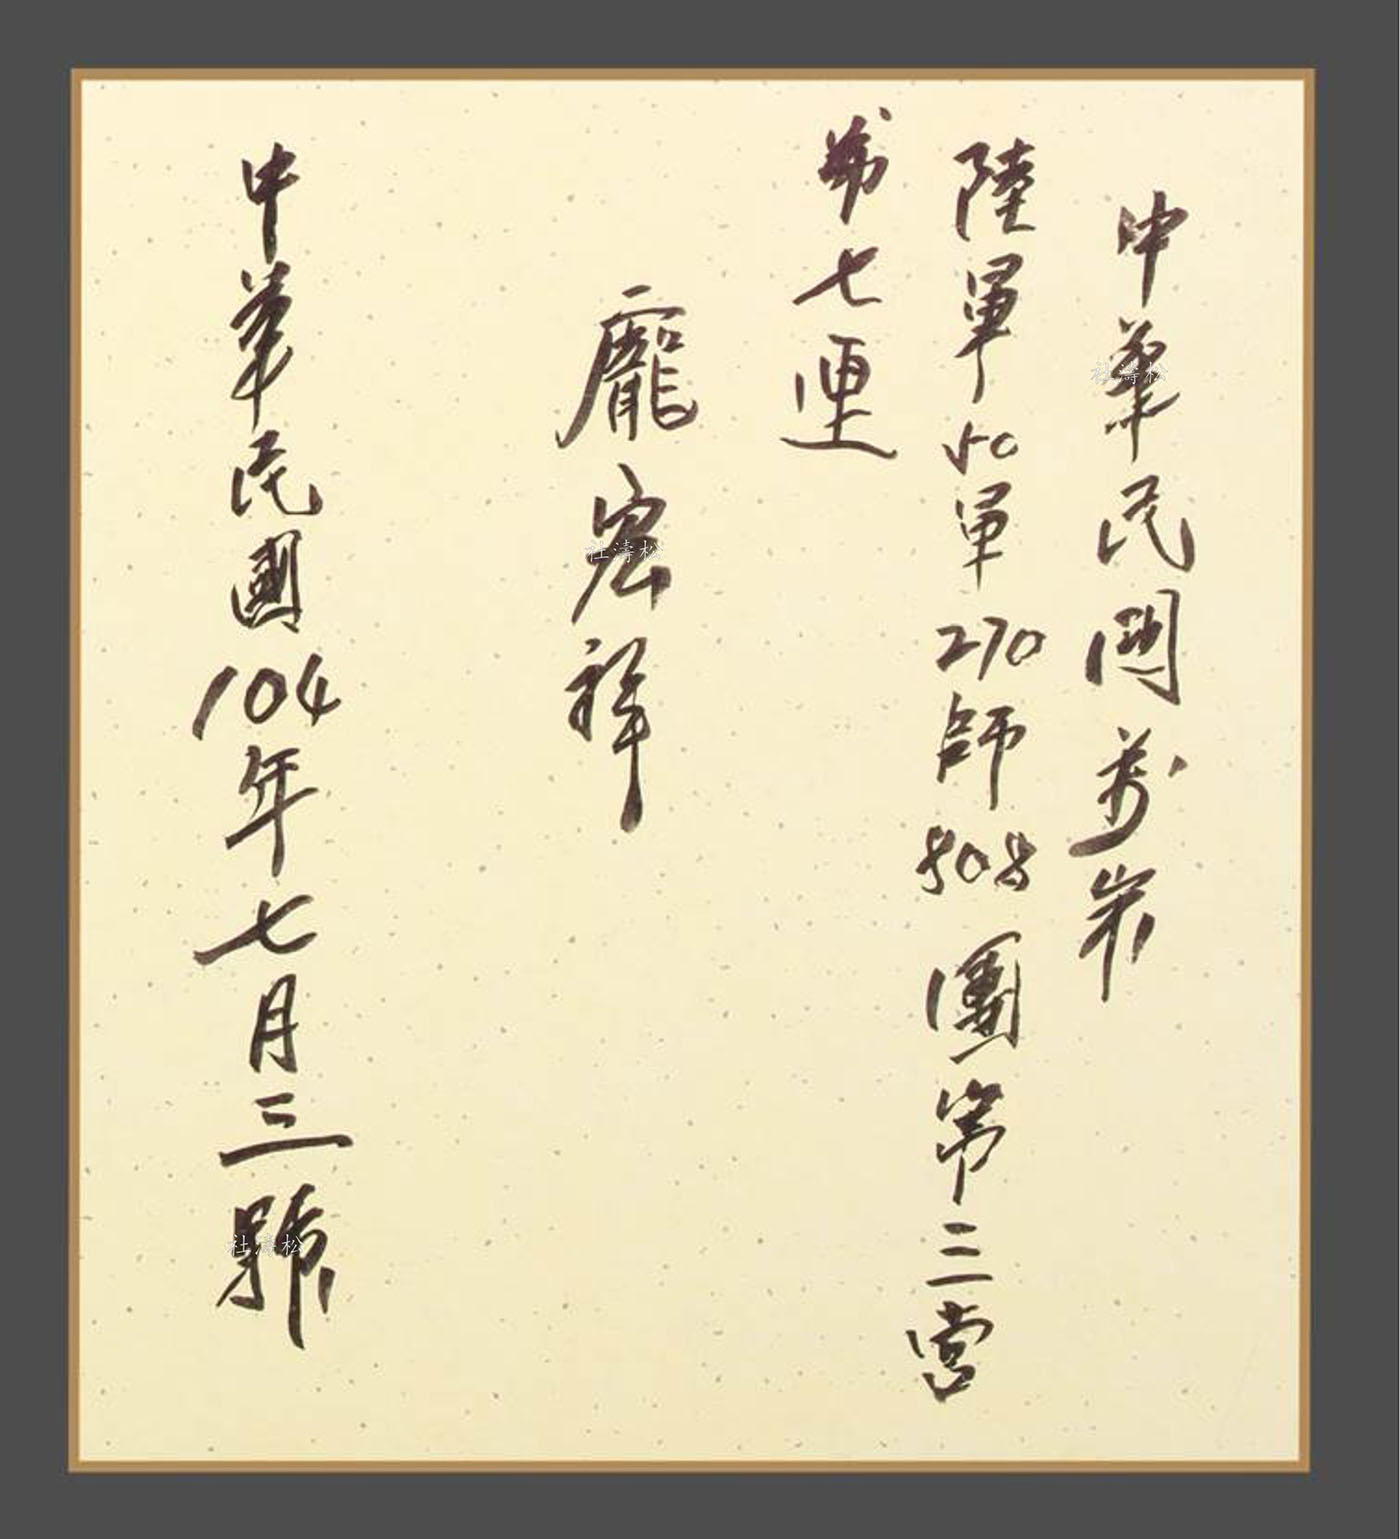 中華民國萬歲
陸軍50軍270師808團第三营
第七連
龐宏祥
中華民國104年七月三號
杜濤松
杜濤松
杜濤松